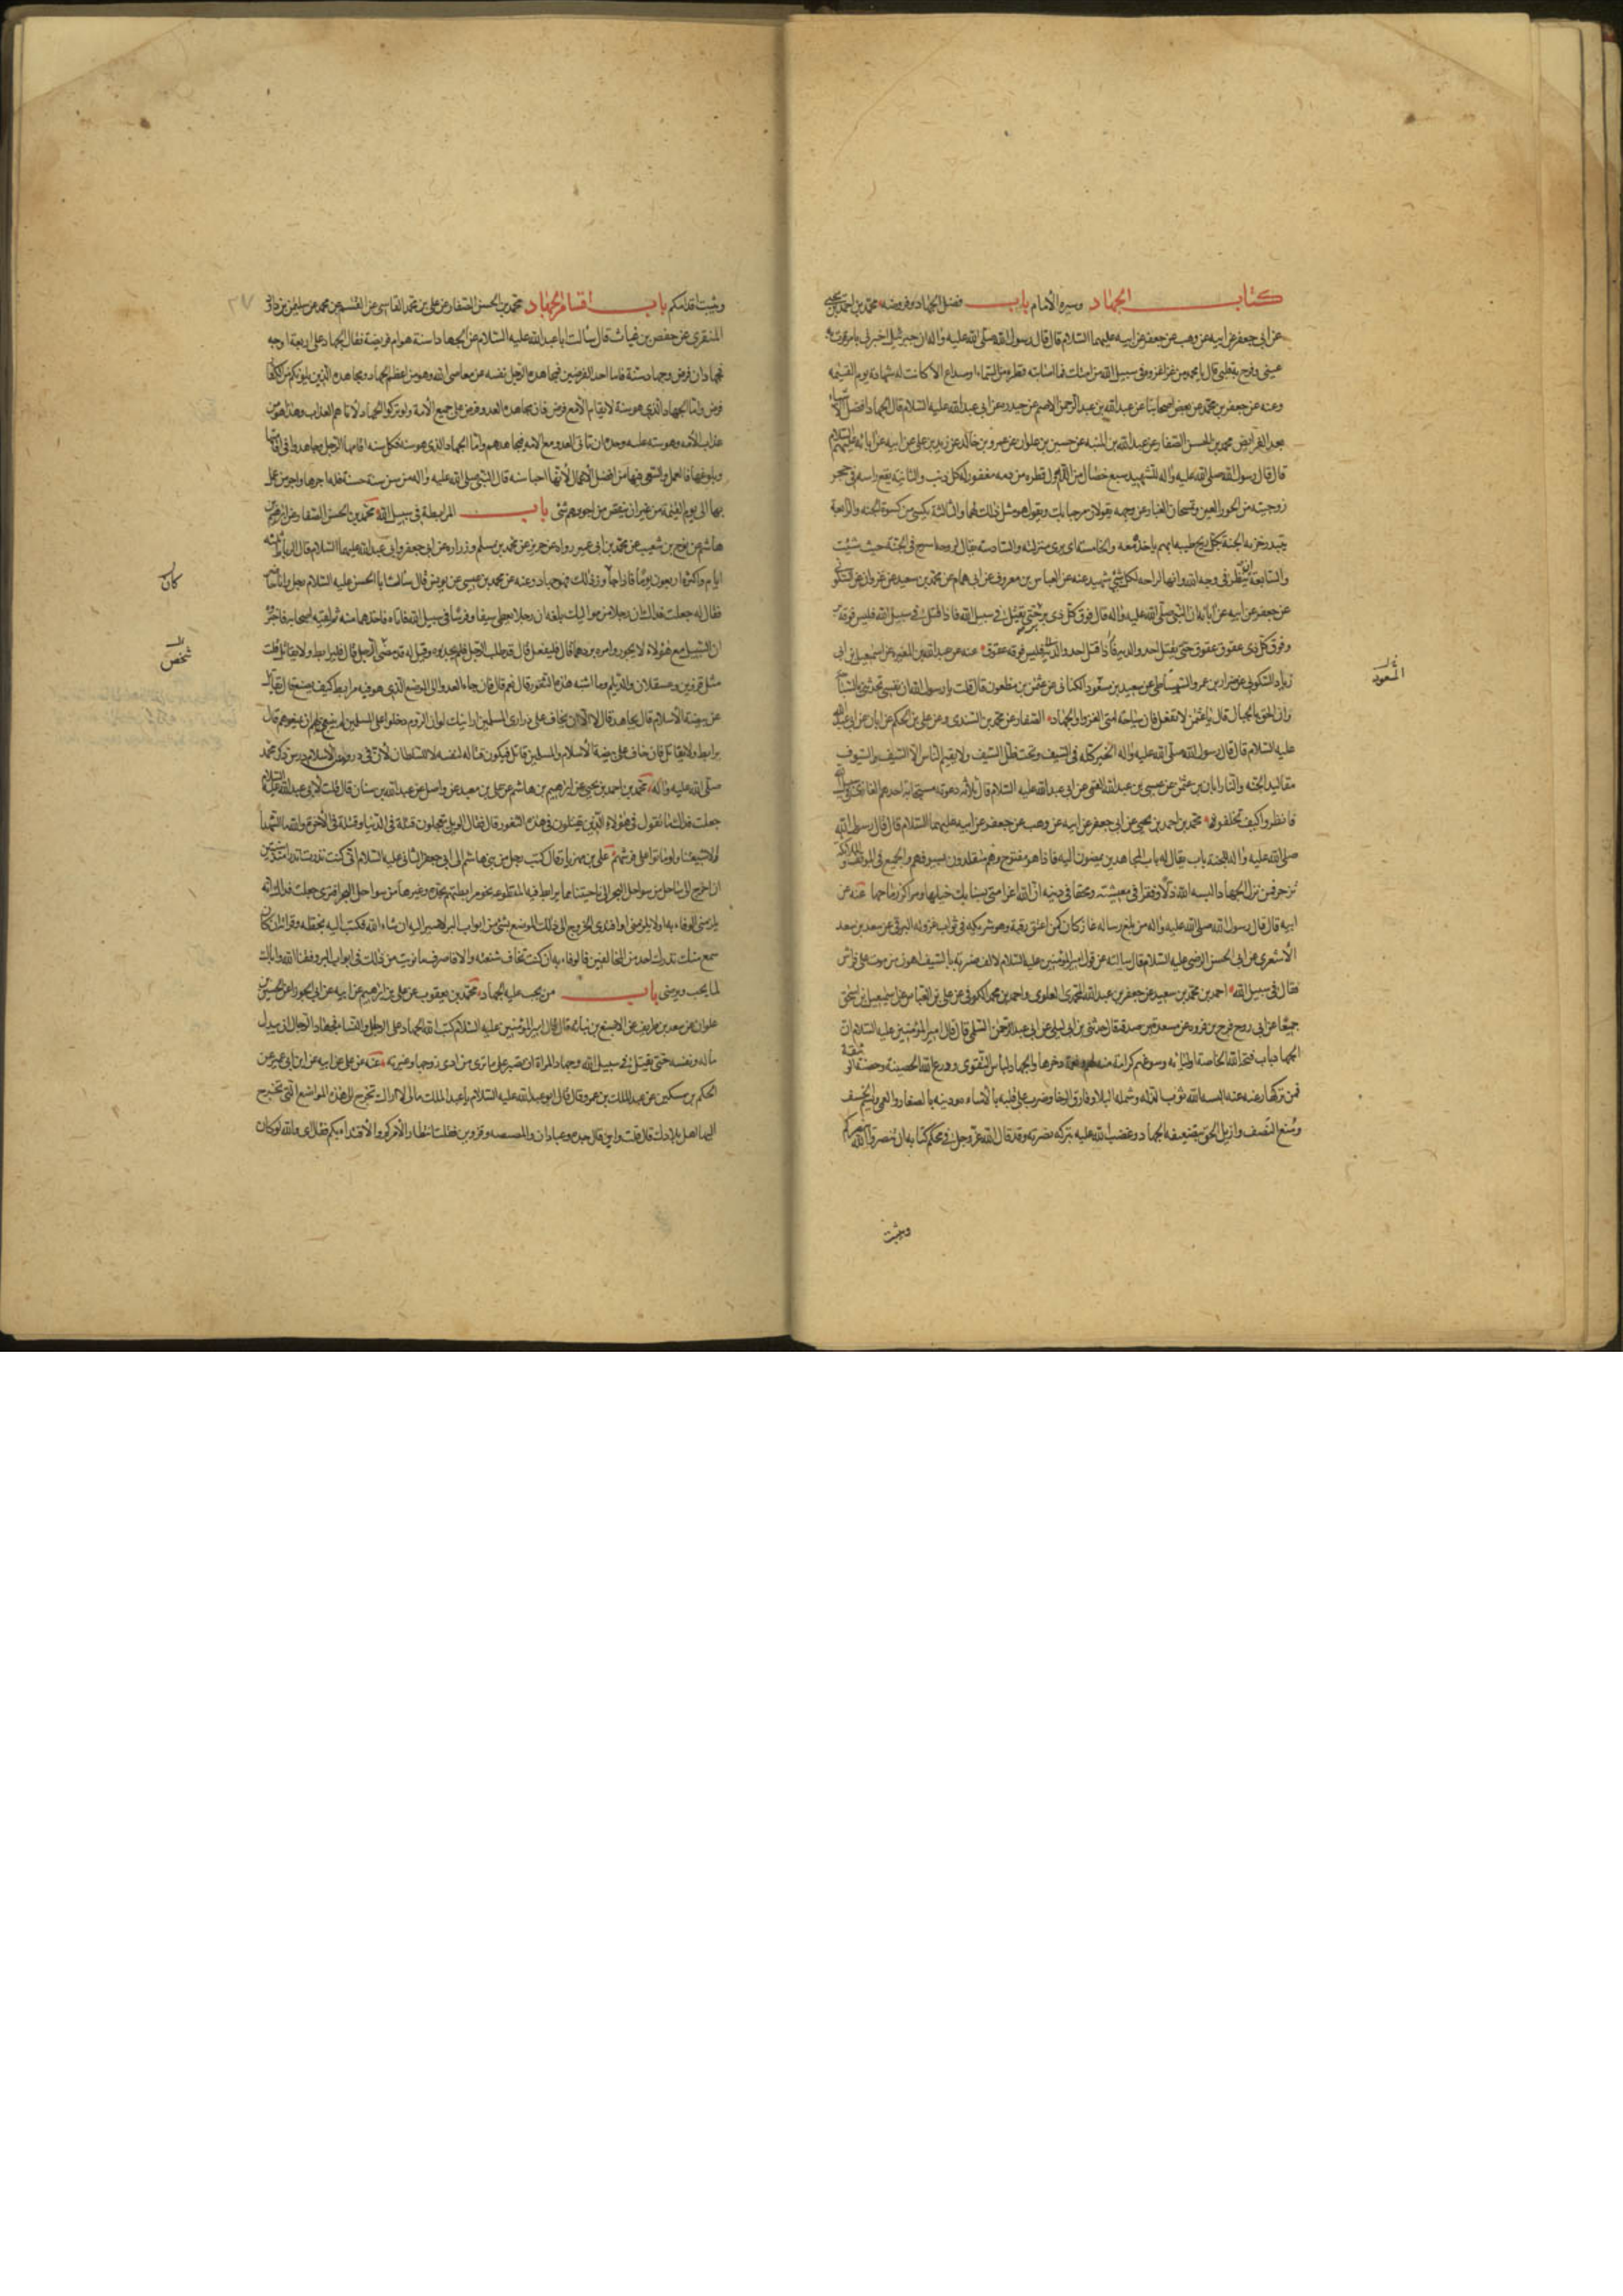 كتاب الجهاد وسيرة الامام باب فضل الجهاد وفروضه محمد بن احمد بن يحيى
عن ابي جعفر عن ابيه عن وهب عن جعفر عن ابيه عليهما السلام قال قال رسول الله صلى الله عليه واله ان جبرئيل اخبرني بامر قرت به
عيني وفرح به قلبي قال يا محمد من غزا غزوة في سبيل الله من امتك فما اصابته قطرة من السماء او صداع الا كانت له شهادة يوم القيمه
وعنه عن جعفر بن محمد عن بعض اصحابنا عن عبد الله بن عبد الرحمن الاصم عن حيدرة عن ابي عبد الله عليه السلام قال الجهاد افضل الاشياء
بعد الفرايض محمد بن الحسن الصفار عن عبد الله بن المنبه عن حسين بن علوان عن عمرو بن خالد عن زيد بن على عن ابيه عن ابائه عليهم السلام
قال قال رسول الله صلى الله عليه واله للشهيد سبع خصال من الله اول قطره من دمه مغفور له كل ذنب والثانية يقع راسه في حجر
زوجتيه من الحور العين وتمسحان الغبار عن وجهه تقولان مرحبا بك ويقول هو مثل ذلك لهما والثالثة يكسى من كسوة الجنه والرابعة
يبتدر خزنه الجنة بكل ريح طيبه ايهم ياخذه معه والخامسة ان يرى منزلته والسادسة يقال لروحه اسرح في الجنة حيث شئت
والسابعة ان ينظر في وجه الله وانها لراحه لكل نبي وشهيد عنه عن العباس بن معروف عن ابي همام عن محمد بن سعيد عن غزوان عن السكوني
عن جعفر عن ابيه عن ابائه ان النبي صلى الله عليه واله قال فوق كل ذي بر بر حتى يقتل في سبيل الله فاذا قتل في سبيل الله فليس فوقه بر
وفوق كل ذي عقوق عقوق حتى يقتل احد والديه فاذا قتل احد والديه فليس فوقه عقوق عنه عن عبد الله بن المغيره عن اسمعيل بن ابي
زياد السكوني عن ضرار بن عمرو الشمشاطي عن سعيد بن مسعود الكناني عن عثمن بن مظعون قال قلت يا رسول الله ان نفسي تحدثني بالسياحة
وان الحق بالجبال قال يا عثمن لا تفعل فان سياحة امتى الغزو والجهاد الصفار عن محمد بن السندى وعن على بن الحكم عن ابان عن ابي عبد الله
عليه السلام قال قال رسول الله صلى الله عليه واله الخير كله في السيف وتحت ظل السيف ولا يقيم الناس الا السيف والسيوف
مقاليد الجنه والنار ابان بن عثمن عن عيسى بن عبد الله القمى عن ابي عبد الله عليه السلام قال ثلاثة دعوتهم مستجابة احدهم الغازي في سبيل الله
فانظروا كيف تخلفونه محمد بن احمد بن يحيى عن ابي جعفر عن ابيه عن وهب عن جعفر عن ابيه عليهما السلام قال قال رسول الله
صلى الله عليه واله للجنة باب يقال له باب المجاهدين يمضون اليه فاذا هو مفتوح وهم متقلدون سيوفهم والجمع في الموقف والملائكة
تزجر فمن ترك الجهاد البسه الله ذلا وفقرا في معيشته ومحقا في دينه ان الله اعز امتى بسنابك خيلها ومراكز رماحها عنه عن
ابيه قال قال رسول الله صلى الله عليه واله من بلغ رسالة غاز كان كمن اعتق رقبة وهو شريكه في ثواب غزوته البرقى عن سعد بن سعد
الاشعرى عن ابي الحسن الرضى عليه السلام قال سالته عن قول امير المؤمنين عليه السلام لالف ضربة بالسيف اهون من موت على فراش
فقال في سبيل الله احمد بن محمد بن سعيد عن جعفر بن عبد الله المحمدى العلوى واحمد بن محمد الكوفى عن على بن العباس عن اسمعيل بن اسحق
جميعا عن ابي روح فرج بن فروه عن مسعدة بن صدقة قال حدثنى بن ابي ليلى عن ابي عبد الرحمن السلمى قال قال امير المؤمنين عليه السلام ان
الجهاد باب فتحه الله لخاصة اوليائه وسوغهم كرامة منه لهم ونعمة ذخرها والجهاد لباس التقوى ودرع الله الحصينة وجنته الوثيقة
فمن تركه رغبة عنه البسه الله ثوب الذله وشمله البلاء وفارق الرخا وضرب على قلبه بالاشباه وديث بالصغار والقماء وسيم الخسف
ومنع النصف واديل الحق بتضييعه الجهاد وغضب الله عليه بتركه نصرته وقد قال الله عز وجل في محكم كتابه ان تنصروا الله ينصركم
ويثبت
المسعود
ويثبت اقدامكم باب اقسام الجهاد محمد بن الحسن الصفار عن على بن محمد القاسى عن القسم بن محمد عن سليمن بن داود
المنقرى عن حفص بن غياث قال سالت ابا عبد الله عليه السلام عن الجهاد اسنة هو ام فريضة فقال الجهاد على اربعة اوجه
فجهادان فرض وجهاد سنة فاما احد الفرضين فمجاهدة الرجل نفسه عن معاصي الله وهو من اعظم الجهاد ومجاهدة الذين يلونكم من الكفار
فرض واما الجهاد الذي هو سنة لا يقام الا مع فرض فان مجاهدة العدو فرض على جميع الامة ولو تركوا الجهاد لاتاهم العذاب وهذا هو من
عذاب الامه وهو سنه عليه وحده ان ياتى العدو مع الامه فيجاهدهم واما الجهاد الذي هو سنه فكل سنه اقامها الرجل وجاهد في اقامتها
وبلوغها فالعمل والسعى فيها من افضل الاعمال لانها احيا سنه قال النبي صلى الله عليه واله من سن سنة حسنة فله اجرها واجر من عمل
بها الى يوم القيمة من غير ان ينتقص من اجورهم شئ باب المرابطة في سبيل الله محمد بن الحسن الصفار عن ابرهيم بن
هاشم عن نوح بن شعيب عن محمد بن ابي عمير رواه عن حريز عن محمد بن مسلم وزراره عن ابي جعفر وابي عبد الله عليهما السلام قال الرباط ثلثه
ايام واكثره اربعون يوما فاذا جاز ذلك فهو جهاد وعنه عن محمد بن عيسى عن يونس قال سالت ابا الحسن عليه السلام رجل وانا حاضر
فقال له جعلت فداك ان رجلا من مواليك بلغه ان رجلا يعطى سيفا وفرسا في سبيل الله فاتاه فاخذهما منه ثم لقيه اصحابه فاخبروه
ان السبيل مع هؤلاء لا يجوز وامروه بردهما قال فليفعل قال قد طلب الرجل فلم يجده وقيل له قد مضى الرجل قال فليرابط ولا يقاتل قلت
مثل قزوين وعسقلان والديلم وما اشبه هذه الثغور قال نعم قال فان جاء العدو الى الموضع الذي هو فيه مرابط كيف يصنع قال يقاتل
عن بيضة الاسلام قال يجاهد قال لا الا ان يخاف على دراري المسلمين ارايتك لو ان الروم دخلوا على المسلمين لم ينبغ لهم ان يمنعوهم قال
يرابط ولا يقاتل فان خاف على بيضة الاسلام والمسلمين قاتل فيكون قتاله لنفسه لا للسلطان لان في دروس الاسلام دروس ذكر محمد
صلى الله عليه واله محمد بن احمد بن يحيى عن ابرهيم بن هاشم عن على بن معبد عن واصل عن عبد الله بن سنان قال قلت لابي عبد الله عليه السلام
جعلت فداك ما تقول في هؤلاء الذين يقتلون في هذه الثغور قال فقال الويل يتعجلون قتلة في الدنيا وقتلة في الاخرة والله ما الشهدا
الا شيعتنا ولو ماتوا على فرشهم على بن مهزيار قال كتب رجل من بنى هاشم الى ابي جعفر الثانى عليه السلام انى كنت نذرت نذرا منذ سنين
ان اخرج الى ساحل من سواحل البحر الى ناحيتنا مما يرابط فيه المتطوعة نحو مرابطتهم بجده وغيرها من سواحل البحر افترى جعلت فداك انه
يلزمنى الوفاء به او لا يلزمنى او افتدى الخروج الى ذلك الموضع بشئ من ابواب البر لاصير اليه ان شاء الله فكتب اليه بخطه وقراته ان كان
سمع منك نذرك احد من المخالفين فالوفاء به ان كنت تخاف شنعته والا فاصرف ما نويت من ذلك في ابواب البر وفقنا الله واياك
لما يحب ويرضى باب من يجب عليه الجهاد محمد بن يعقوب عن على بن ابرهيم عن ابيه عن ابي الجوزا عن الحسين بن
علوان عن سعد بن طريف عن الاصبغ بن نباته قال قال امير المؤمنين عليه السلام كتب الله الجهاد على الرجال والنساء فجهاد الرجال ان يبذل
ماله ونفسه حتى يقتل في سبيل الله وجهاد المراة ان تصبر على ما ترى من اذى زوجها وغيرته عنه عن على عن ابيه عن ابن ابي عمير عن
الحكم بن مسكين عن عبد الملك بن عمرو قال قال ابو عبد الله عليه السلام يا عبد الملك مالى لا اراك تخرج الى هذه المواضع التى تخرج
اليها اهل بلادك قال قلت واين قال جده وعبادان والمصيصه وقزوين فقلت انتظارا لامركم والاقتدا بكم فقال اى والله لو كان
كان
شخص
٢٧